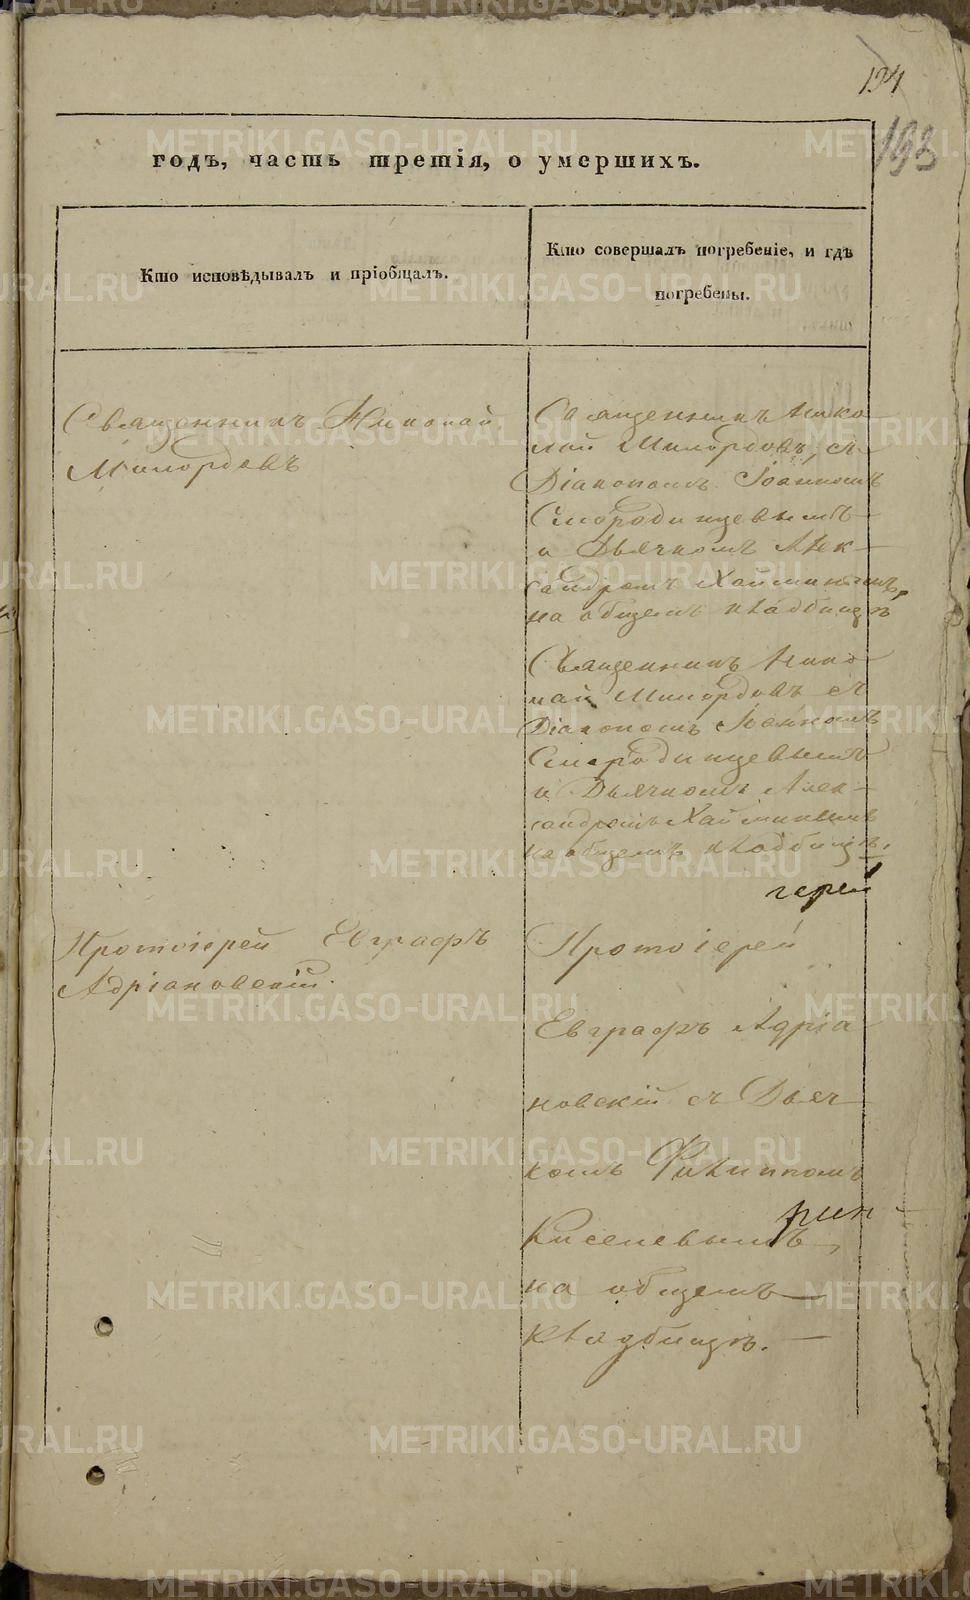 134
193
годъ, часть третія, о умершихъ.
Кто исповѣдывалъ и пріобщалъ.
Кто совершалъ погребеніе, и гдѣ
погребены.
Священникъ Николай
Милордовъ
Священникъ Нико
лай Милордовъ, съ
Діакономъ Іоанномъ
Смородинцевымъ
и Дьячкомъ Алек-
сандромъ
на общемъ кладбищѣ
Священникъ Нико
лай Милордовъ съ
Діакономъ Іоанномъ
Смородинцевымъ
и Дьячкомъ Алек-
сандромъ
на общемъ кладбищѣ.
герей
Протоіерей Евграфъ
Адріановскій.
Протоіерей
Евграфъ Адріа
новскій съ Дьяч
комъ Филиппомъ
Киселевымъ,
на общемъ
кладбищѣ.
METRIKI.GASO-URAL.RU